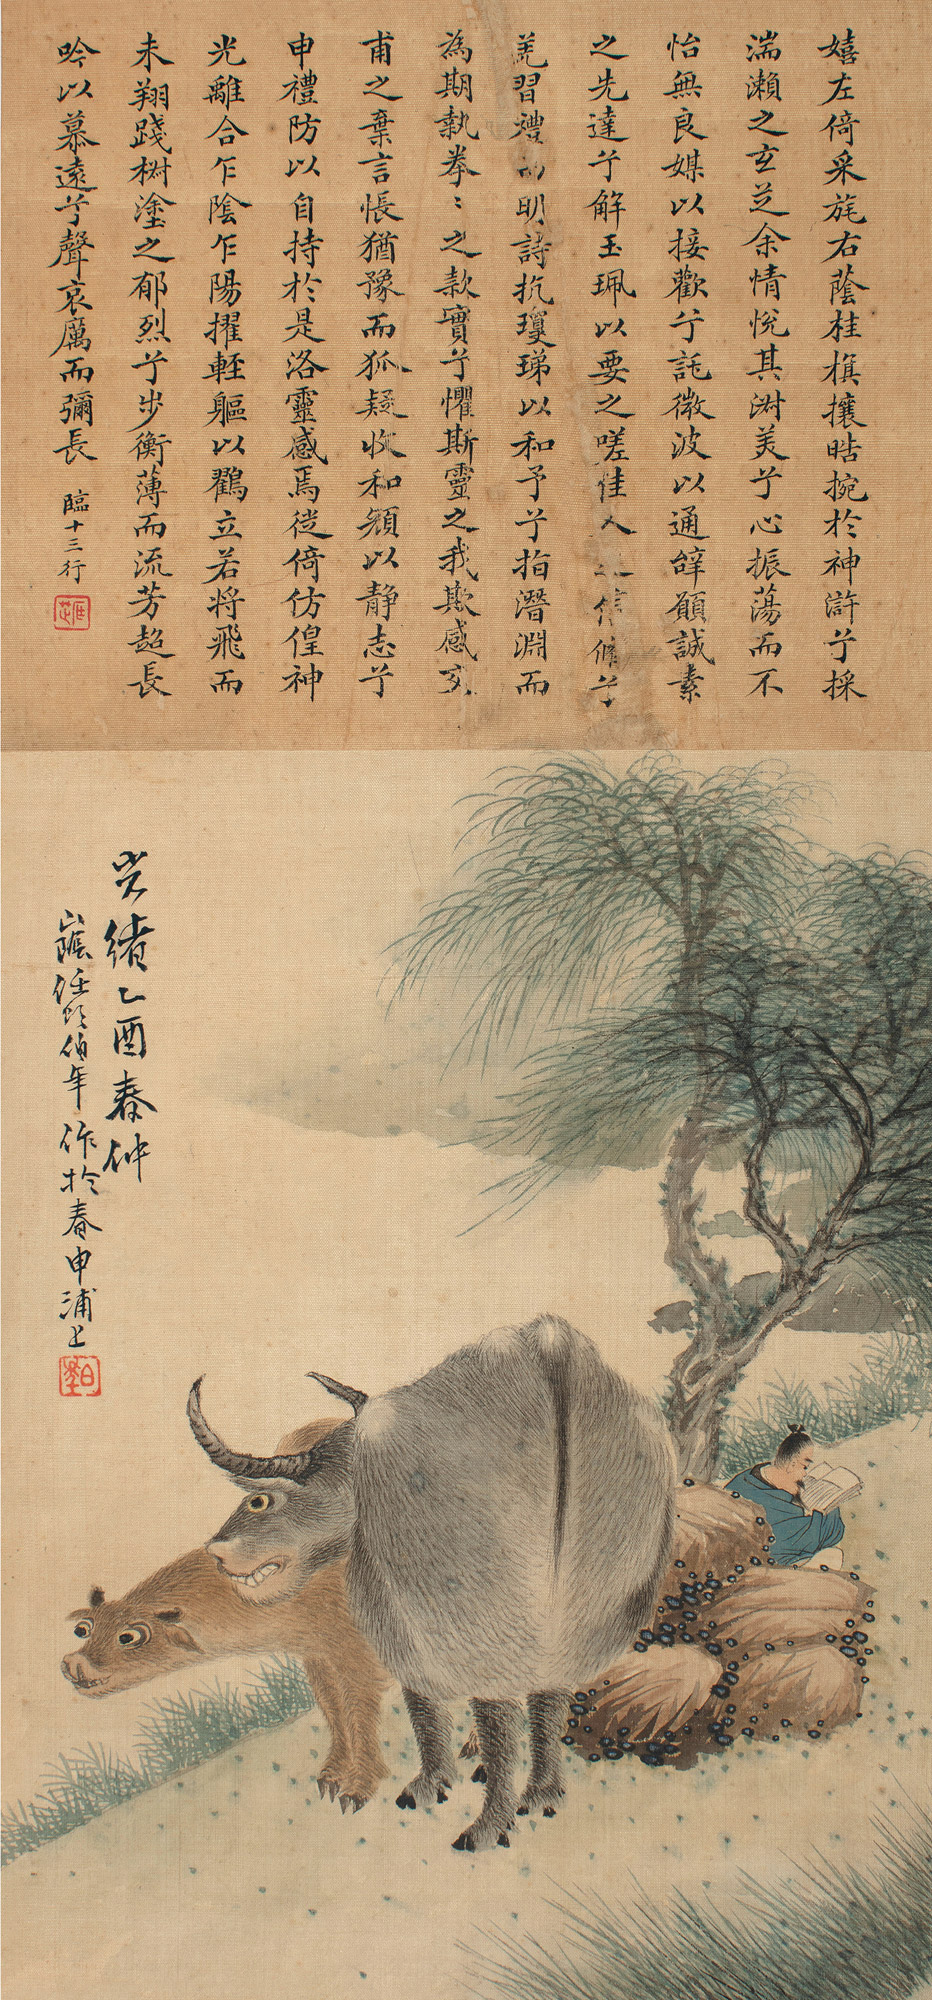 嬉左倚采旄右蔭桂旗攘皓捥於神滸兮採
湍瀨之玄芝余情悅其淑美兮心振蕩而不
怡無良媒以接歡兮託微波以通辭願誠素
之先達兮解玉珮以要之嗟佳人之信脩兮
羌習禮而明詩抗瓊珶以和予兮指潛淵而
為期執拳〻之款實兮懼斯靈之我欺感交
甫之棄言悵猶豫而狐疑收和顏以靜志兮
申禮防以自持於是洛靈感焉徙倚仿偟神
光離合乍陰乍陽擢輕軀以鸖立若將飛而
未翔踐椒塗之郁烈兮步衡薄而流芳超長
吟以慕遠兮聲哀厲而彌長 臨十三行
光緒乙酉春仲
山陰任頤伯年作於春申浦上